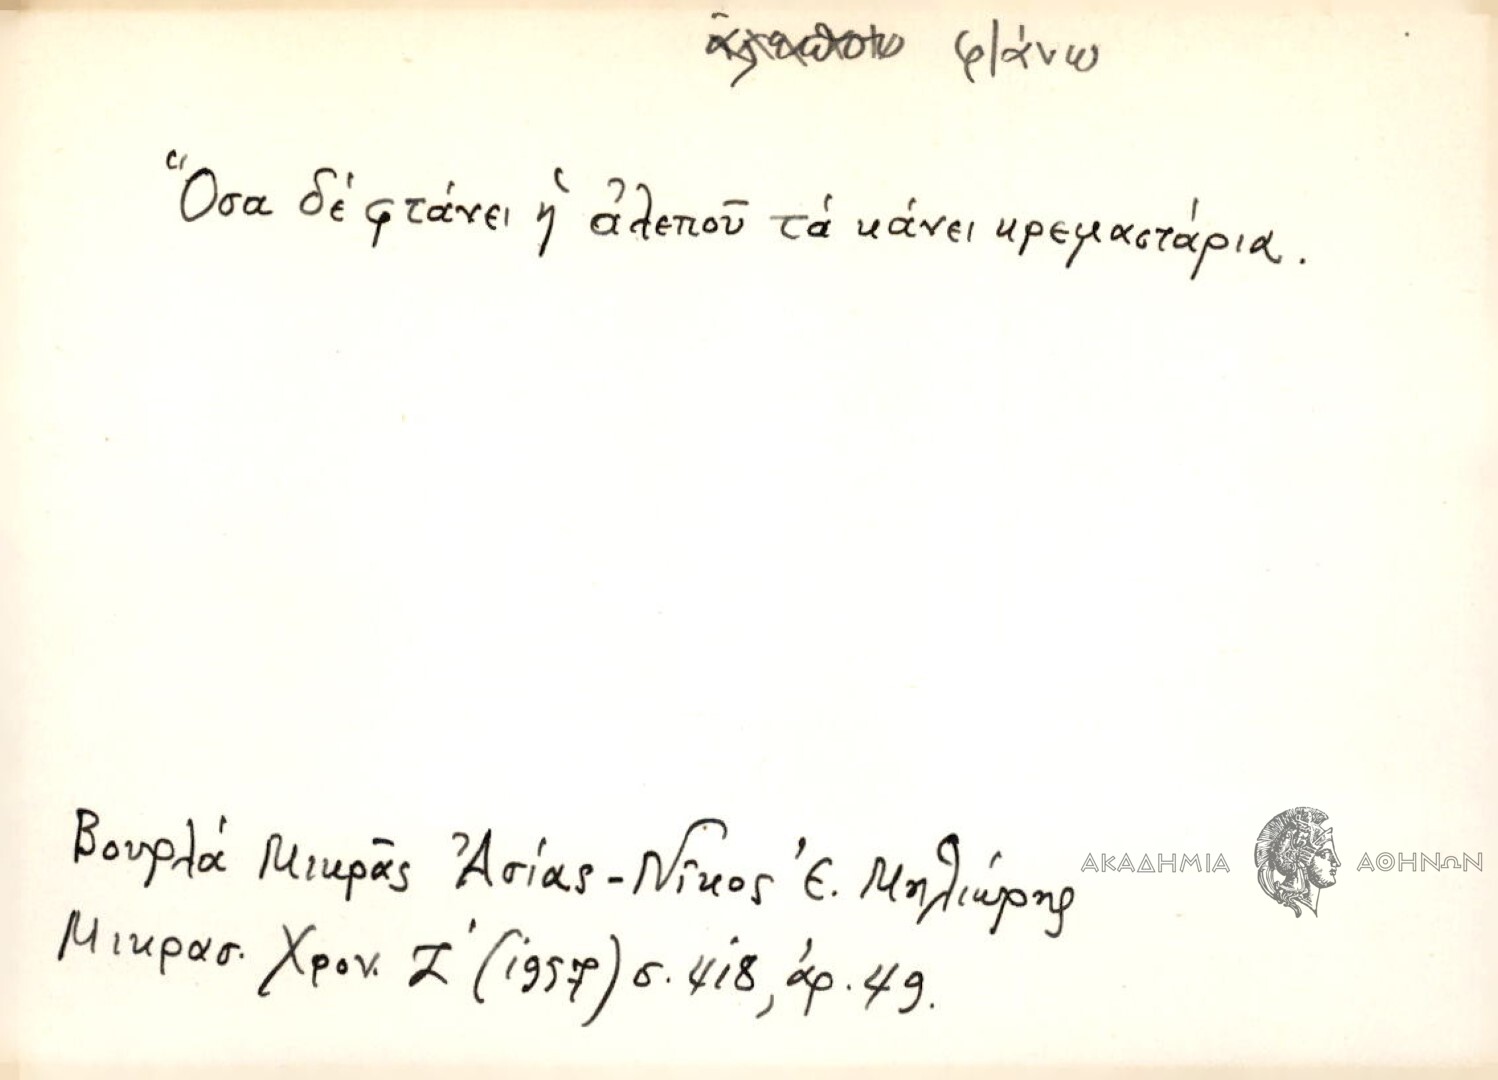 φτάνω
Ὅσα δέ φτάνει ἡ ἀλεποῦ τά κάνει κρεμαστάρια.
Βουρλά Μικρᾶς Ἀσίας - Νῖκος Ἐ. Μηλιώρης
ΑΚΑΔΗΜΙΑ ΑΘΗΝΩΝ
Μικρασ. Χρον. Ζ΄ (1957) σ. 418, ἀρ. 49.